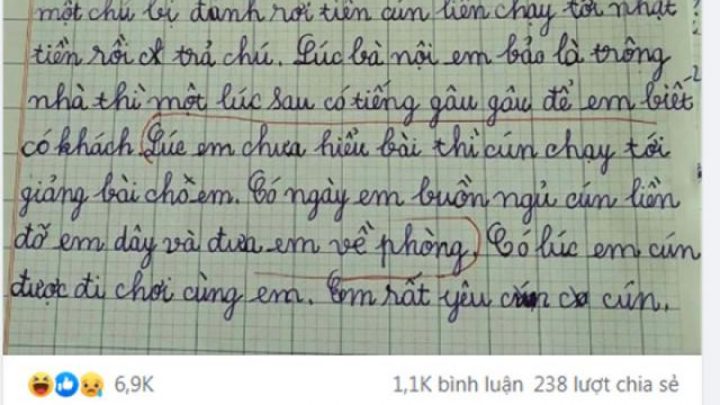 một chú bị đánh rơi tiền cún liền chạy tới nhặt
tiền rồi trả chú. Lúc bà nội em bảo là trông
nhà thì một lúc sau có tiếng gâu gâu để em biết
có khách. Lúc em chưa hiểu bài thì cún chạy tới
giảng bài cho em. Có ngày em buồn ngủ cún liền
đỡ em dậy và đưa em về phòng. Có lúc em cún
được đi chơi cùng em. Em rất yêu cún.
6,9K
1,1K bình luận 238 lượt chia sẻ